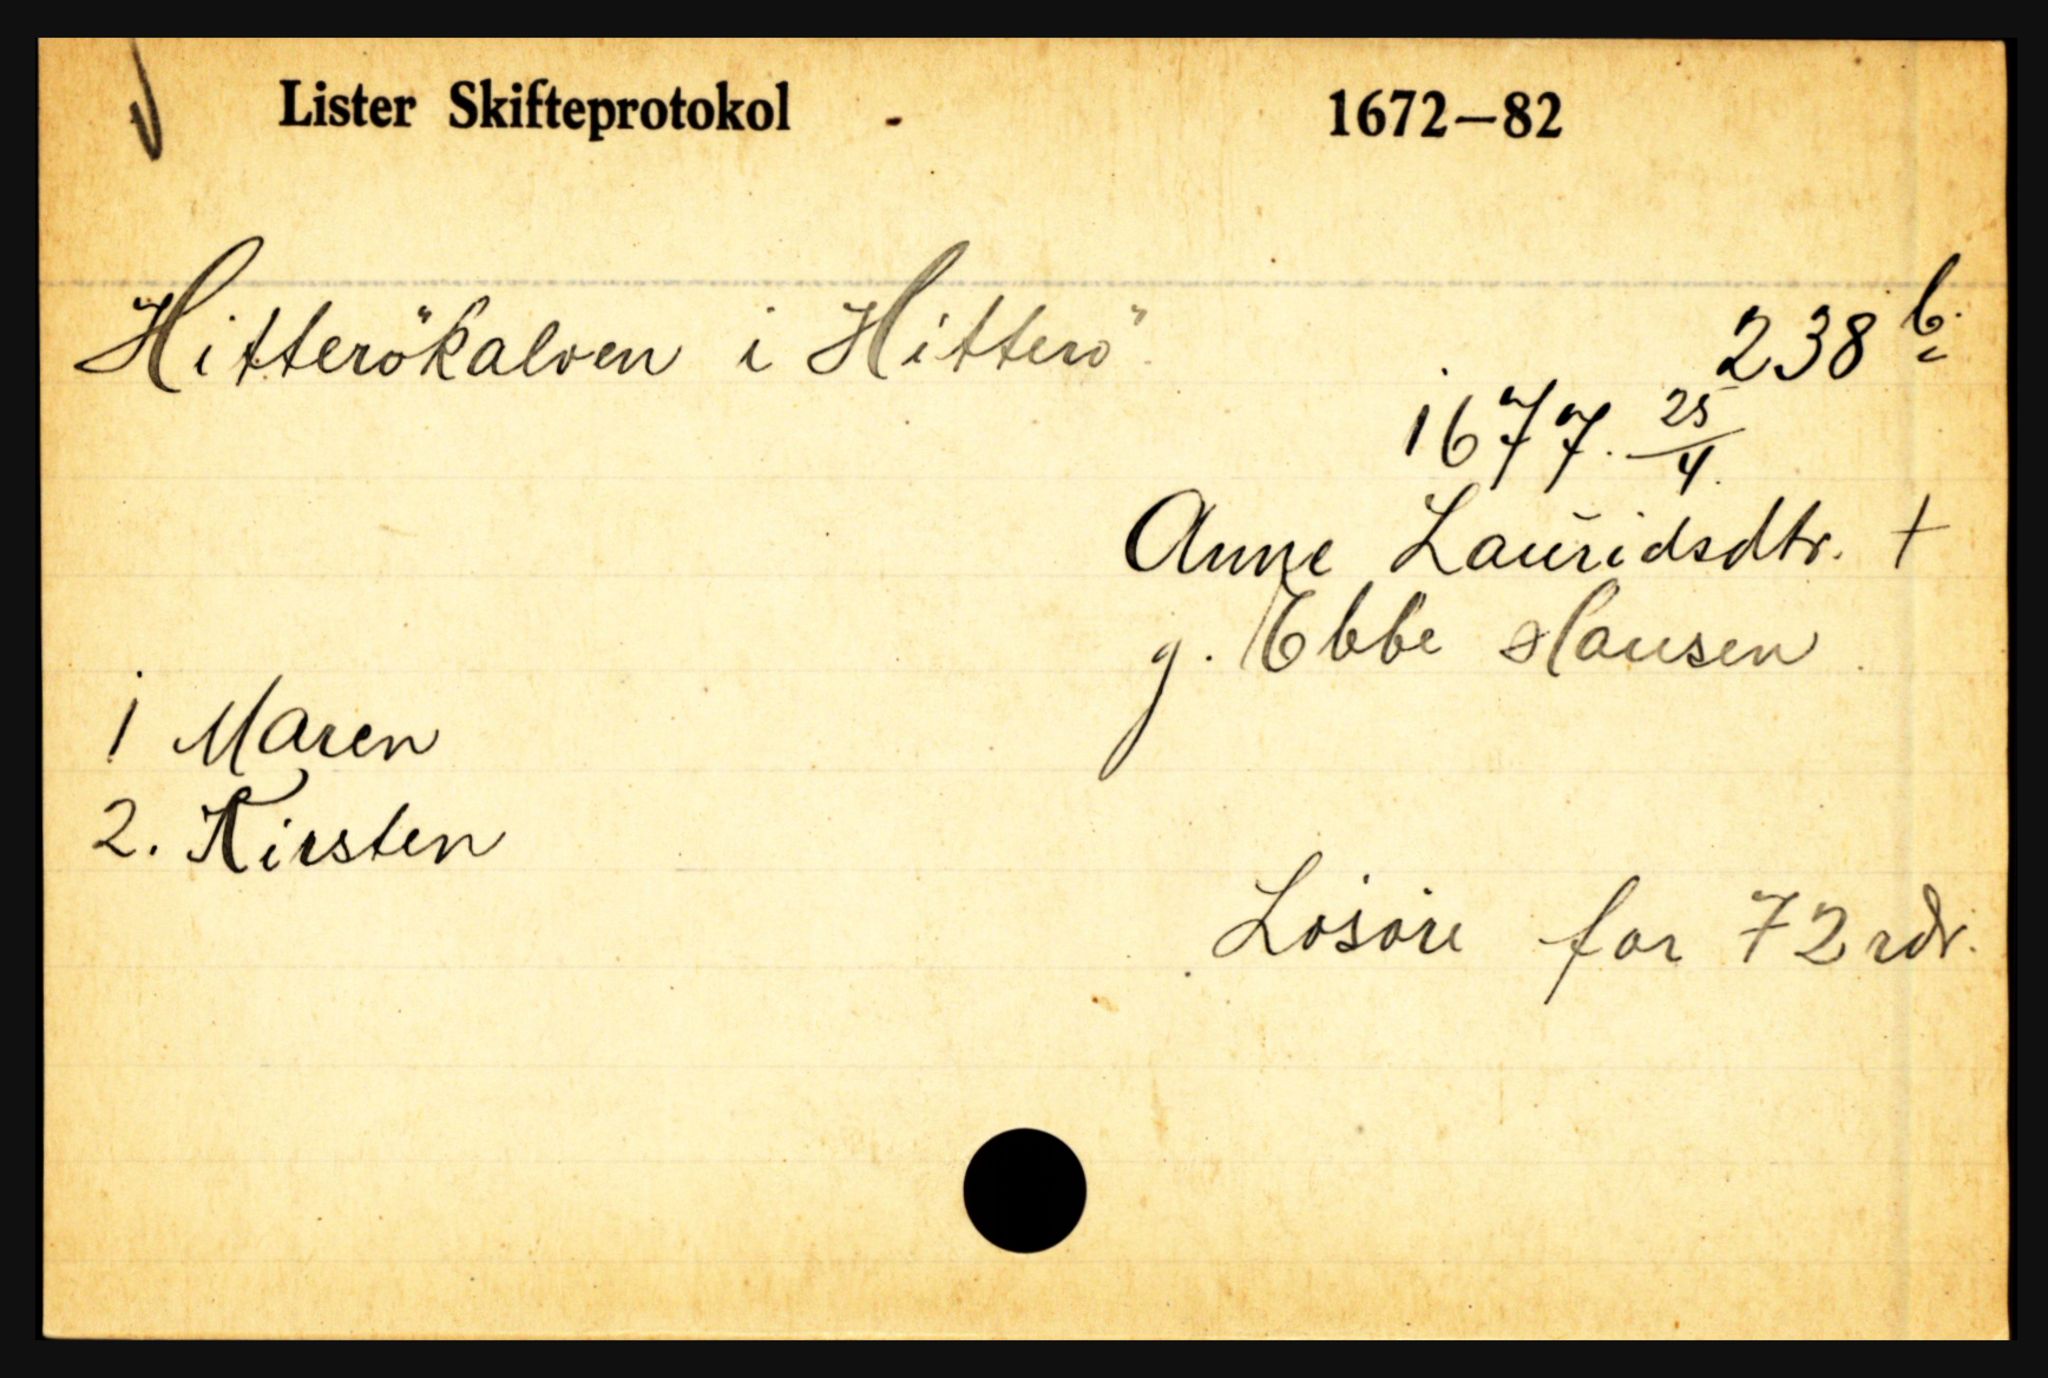 Lister Skifteprotokol - 1672–82
Hitterökalven i Hitterö 238 b.
1677. 25/4.
Anne Lauridsdtr. +
g. Ebbe Hansen.
1 Maren
2. Kirsten
Losöre for 72 rdr.